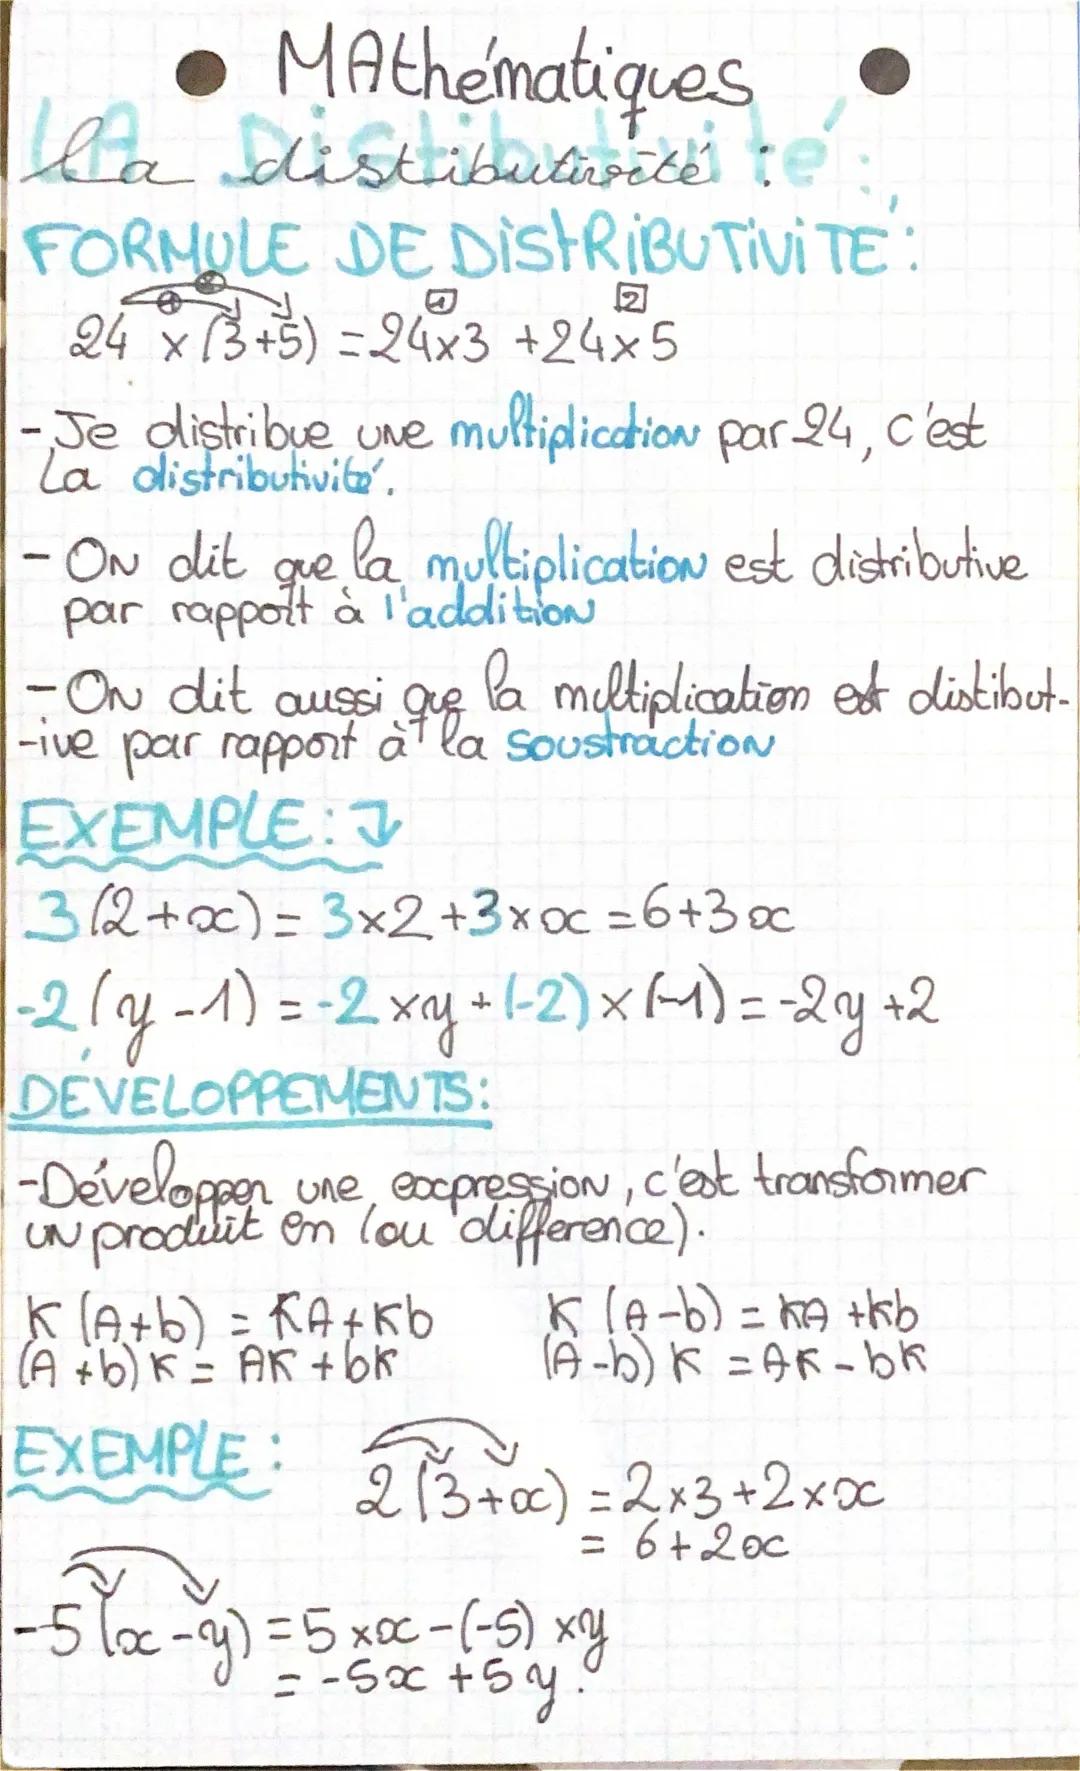 MAthématiques
LA Distibutivité:
la distibutivité :
FORMULE DE DistRiBUTiViTÉ :
24 x (3+5) = 24x3 + 24x5
- Je distribue une multiplication par 24, c'est
la distributivité.
- ON dit que la multiplication est distributive
par rapport à l'addition
- ON dit aussi que la multiplication est distibut-
-ive par rapport à la soustraction
EXEMPLE: ↓
3(2+x) = 3x2 + 3xx = 6+3x
-2(y-1) = -2 xy + (-2) x (-1) = -2y +2
DÉVELOPPEMENTS:
- Développer une expression, c'est transformer
un produit en (ou différence).
K (A+b) = KA+Kb K (A-b) = KA +Kb
(A+b)K = AK +bK (A-b) K = AK - bK
EXEMPLE :
2(3+x) = 2x3+2xx
= 6+2x
-5(x-y) = 5xx-(-5) xy
= -5x +5y.